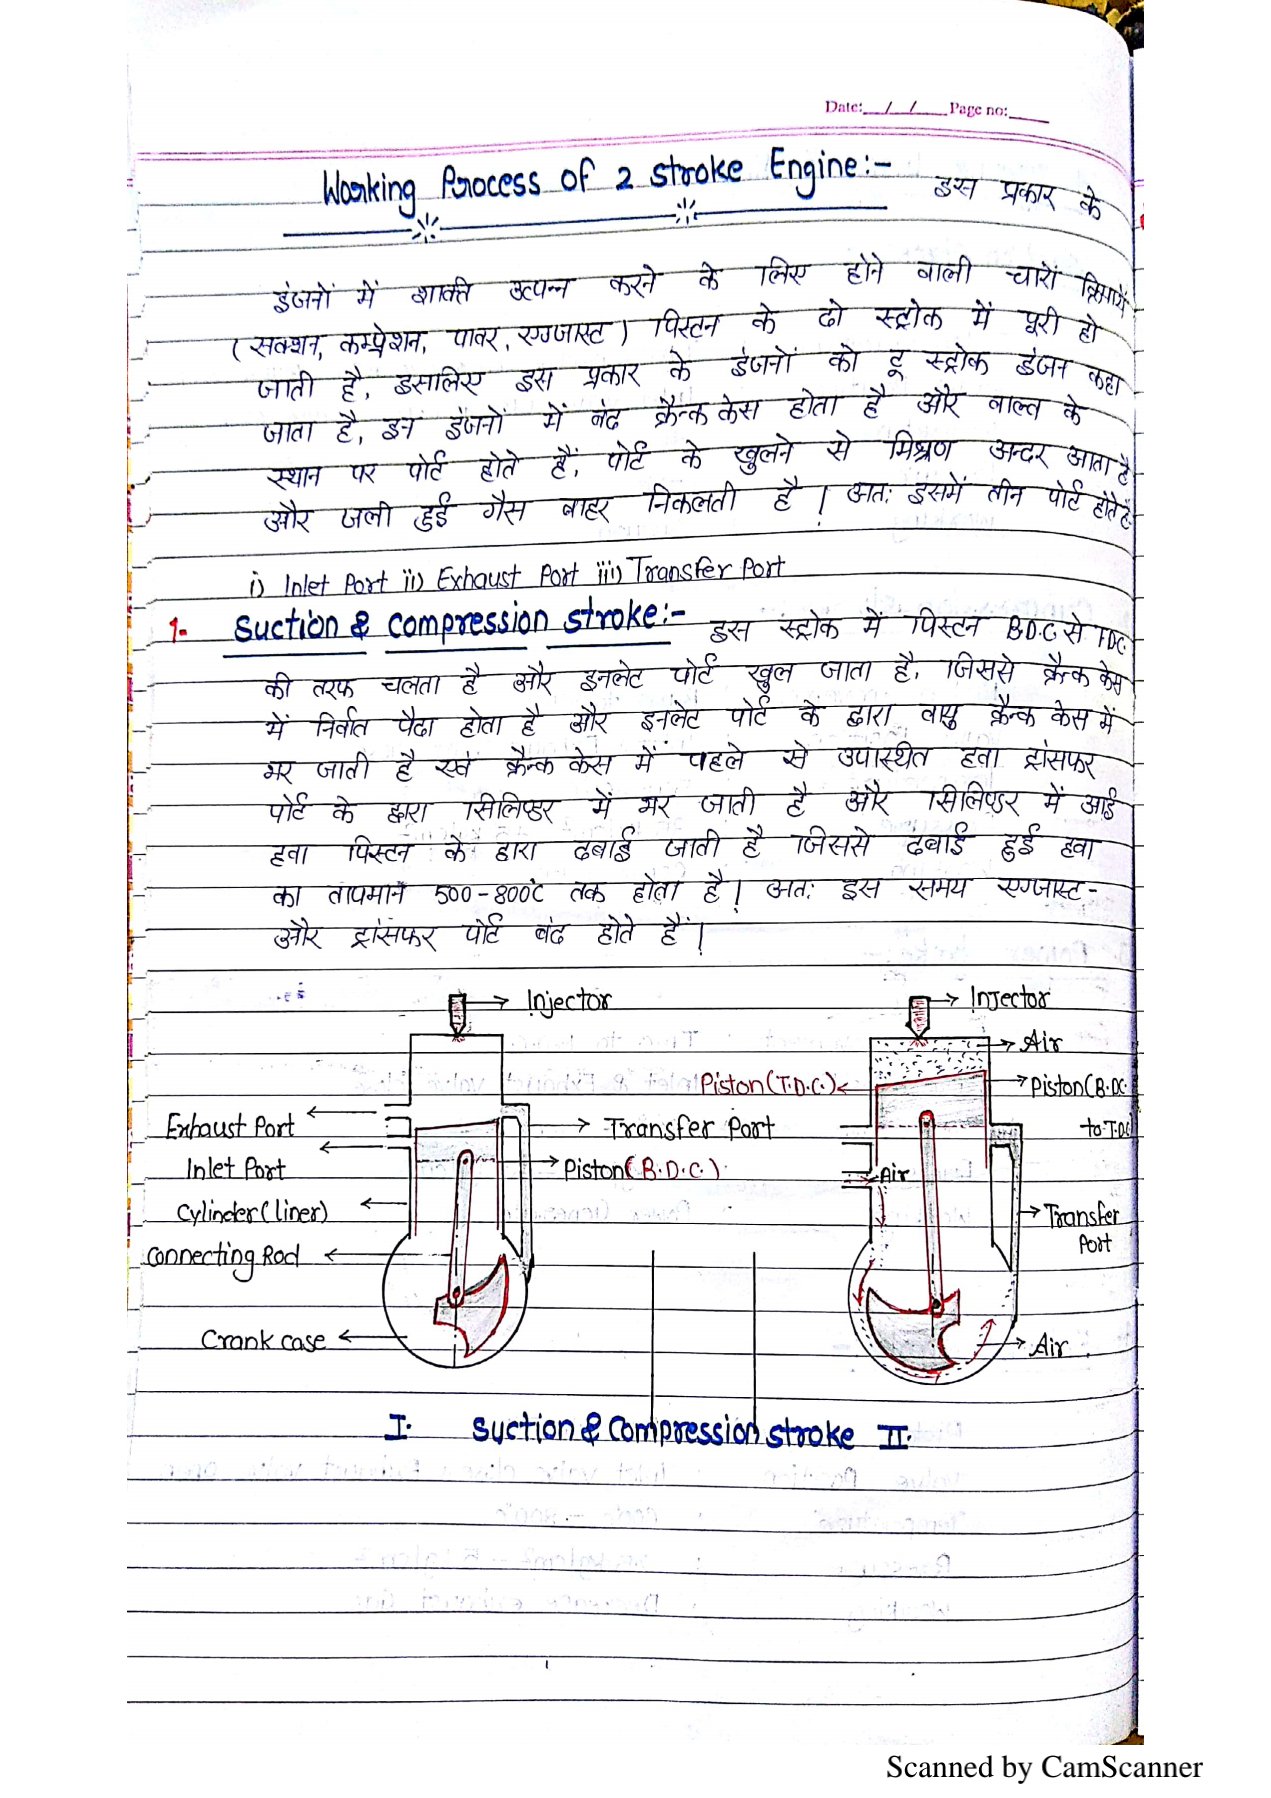 Date:__/__/____ Page no:____
Working Process of 2 Stroke Engine:- इस प्रकार के
इंजनों में शक्ति उत्पन्न करने के लिए होने वाली चारों क्रियायें
(सक्शन, कम्प्रेशन, पावर, एग्जास्ट) पिस्टन के दो स्ट्रोक में पूरी हो
जाती है, इसलिए इस प्रकार के इंजनों को टू स्ट्रोक इंजन कहा
जाता है, इन इंजनों में बंद क्रैन्क केस होता है और वाल्व के
स्थान पर पोर्ट होते हैं, पोर्ट के खुलने से मिश्रण अन्दर आता है
और जली हुई गैस बाहर निकलती है। अतः इसमें तीन पोर्ट होते हैं
i) Inlet Port ii) Exhaust Port iii) Transfer Port
1- Suction & Compression Stroke:- इस स्ट्रोक में पिस्टन B.D.C से T.D.C.
की तरफ चलता है और इनलेट पोर्ट खुल जाता है, जिससे क्रैन्क केस
में निर्वात पैदा होता है और इनलेट पोर्ट के द्वारा वायु क्रैन्क केस में
भर जाती है एवं क्रैन्क केस में पहले से उपास्थित हवा ट्रांसफर
पोर्ट के द्वारा सिलिण्डर में भर जाती है और सिलिण्डर में आई
हवा पिस्टन के द्वारा दबाई जाती है जिससे दबाई हुई हवा
का तापमान 500-800°C तक होता है। अतः इस समय एग्जास्ट-
और ट्रांसफर पोर्ट बंद होते हैं।
Injector
Exhaust Port
Inlet Port
Cylinder (liner)
Connecting Rod
Crank case
Transfer Port
Piston (B.D.C.)
Injector
Air
Piston (T.D.C.)
Piston (B.DC.
to T.DC
Air
Transfer
Port
Air
I. Suction & Compression Stroke II.
Scanned by CamScanner